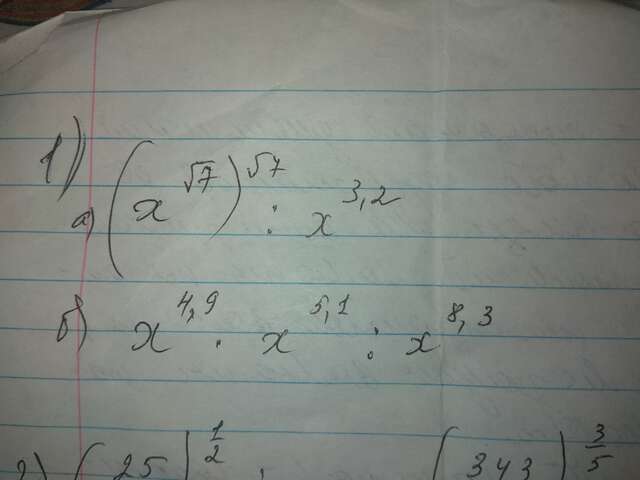 1)
а) (x^√7)^√7 : x^3,2
б) x^4,9 · x^5,1 : x^8,3
2) (25)^1/2 (343)^3/5